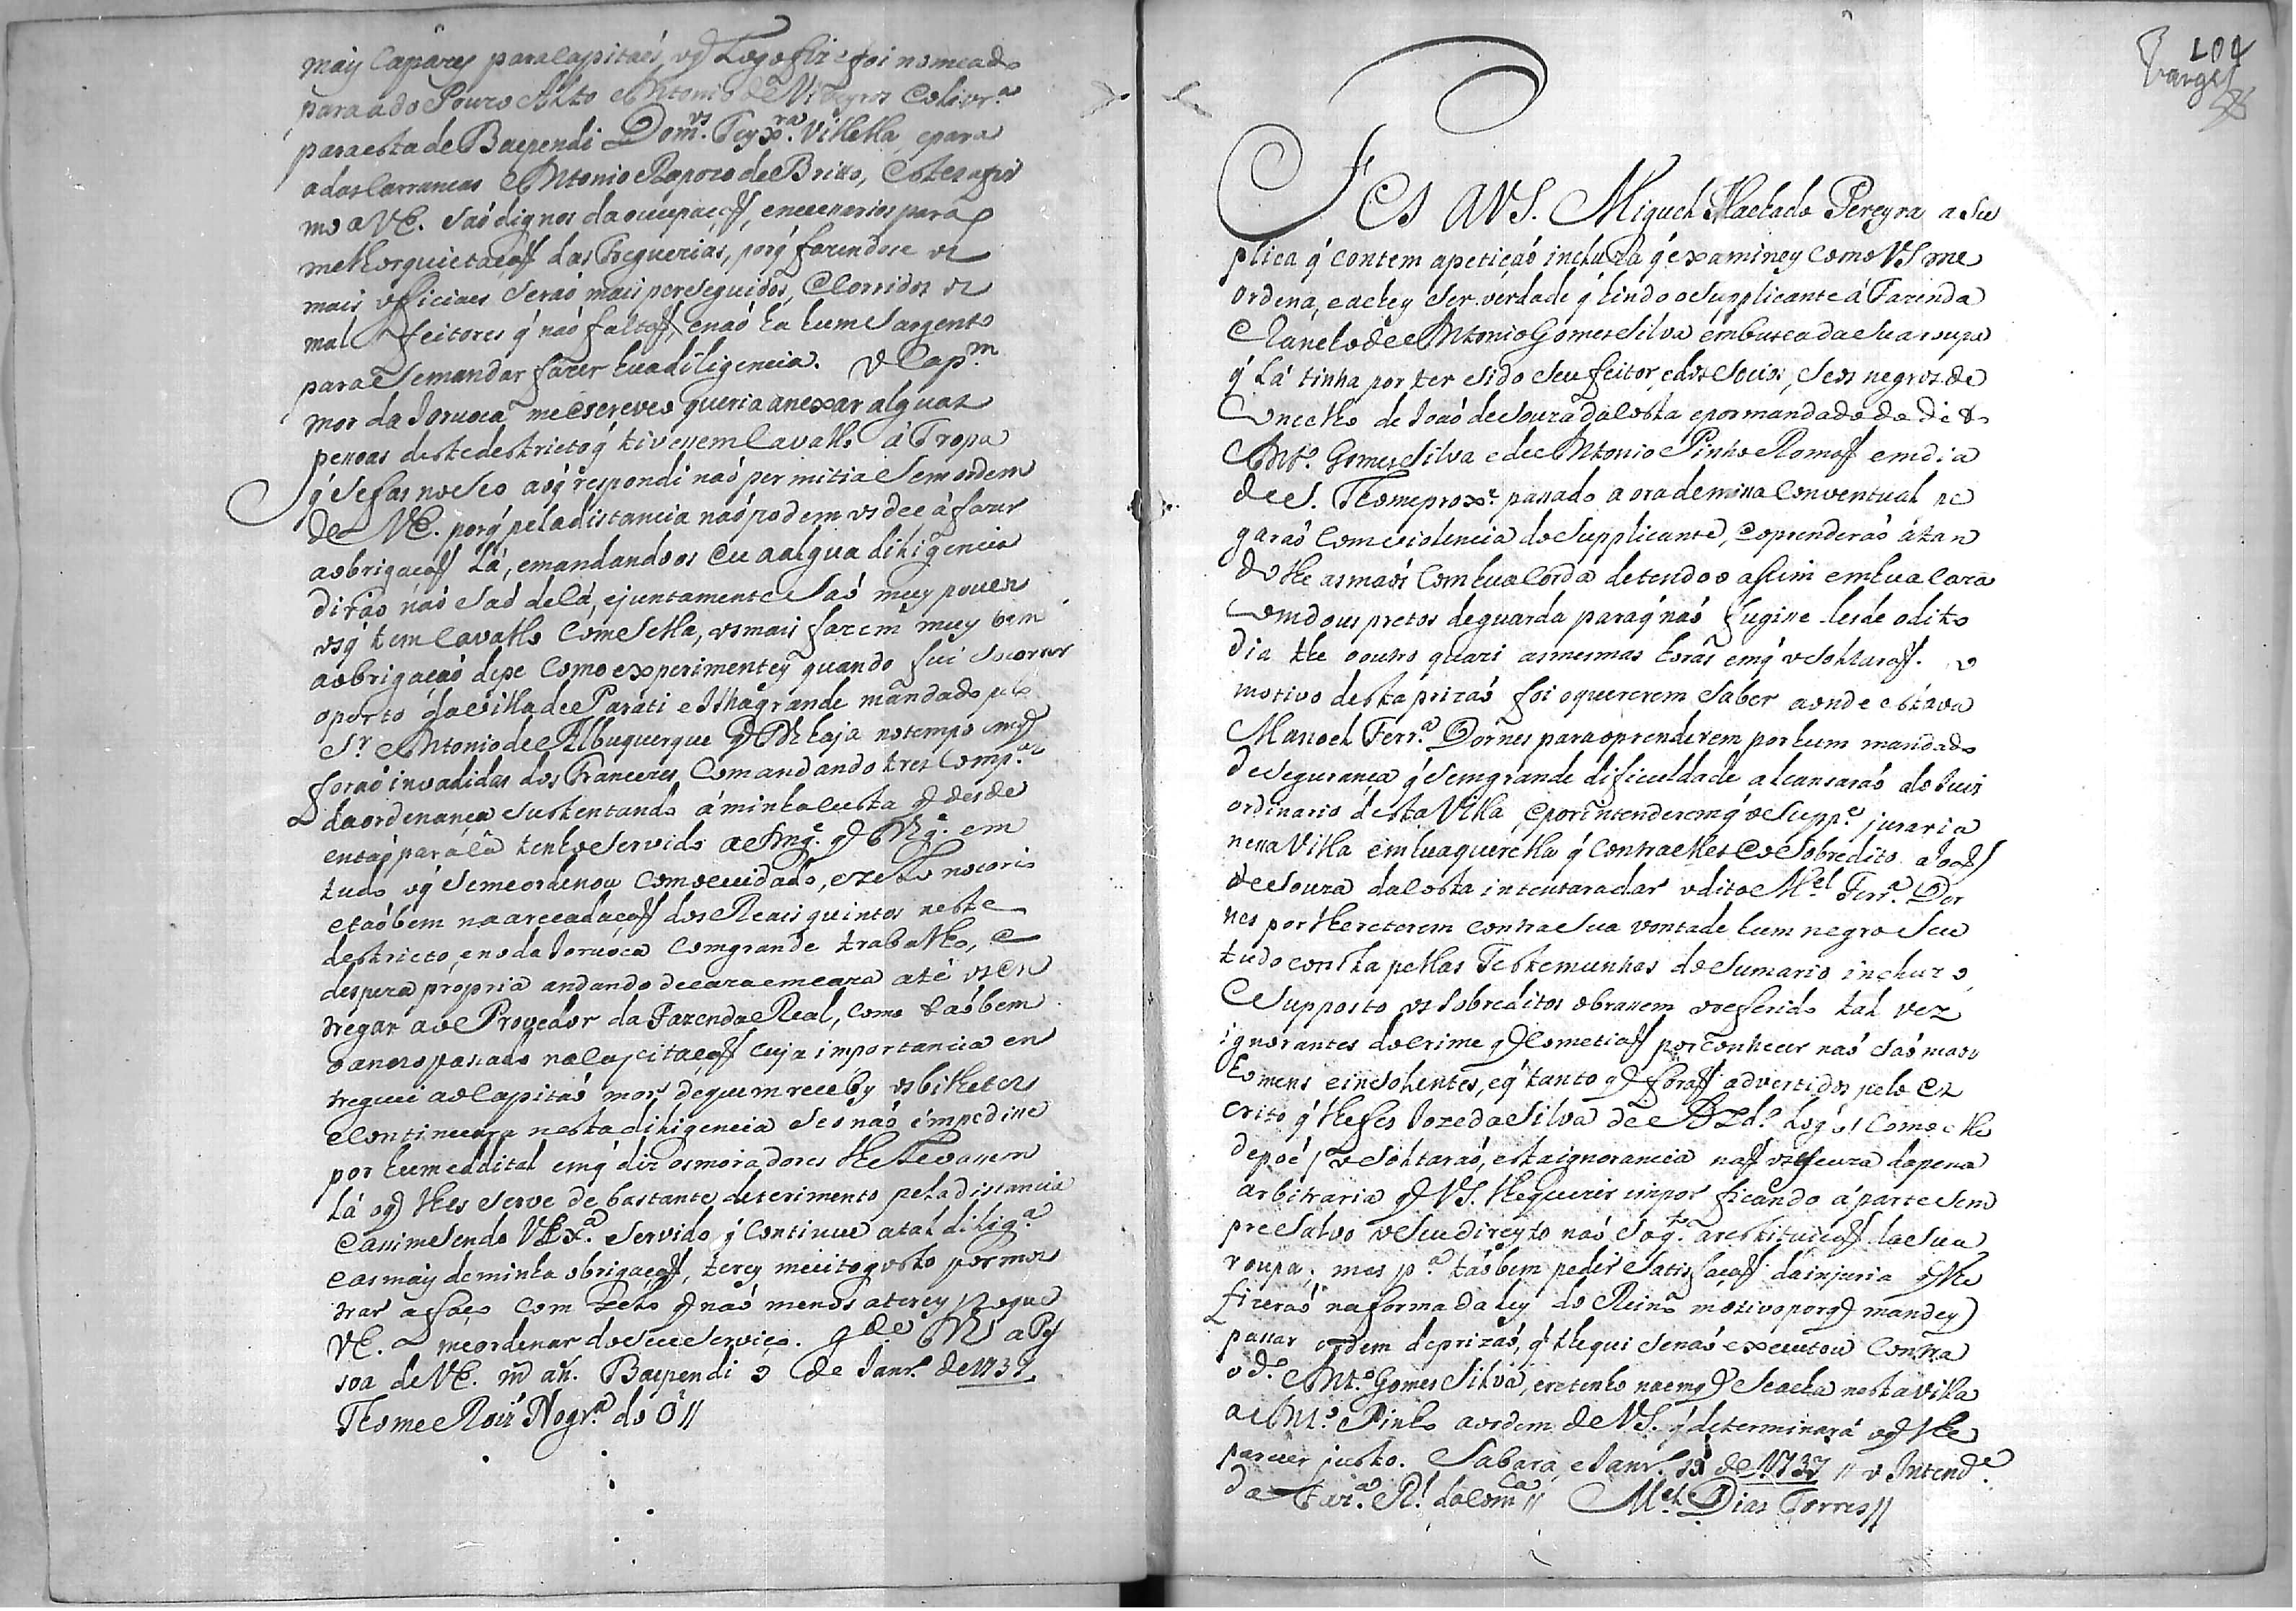 mais Capazes para Capitaẽs, o q̃ Logo fiz e foi nomeado
para a do Pouzo Alto Antonio de Viveyros e Olivr.ª
para esta de Baependi Dom.ºs Teyx.rª Vilhella, e para
a das Carrancas Antonio Rapozo de Britto, estes afir
mo a VE. saõ dignos da occupaçaõ, e necesarios para
melhor quietaçaõ das Freguezias, porq̃ fazendose os
mais officiaes seraõ mais perseguidos, e Corridos os
mal feitores q̃ naõ faltaõ, e naõ ha hum Sargento
para se mandar fazer hua diligencia. O Cap.m
mor da Joruoca me escreveo queria anexar alguas
pesoas deste destricto q̃ tivesem Cavallo á Tropa
q̃ se fas no seo ao q̃ respondi naõ permitia sem ordem
de VE. porq̃ pela distancia naõ podem os de cá fazer
a obrigaçaõ Lá, e mandandoos eu a algua diligencia
diraõ naõ saõ de lá, e juntamente saõ muy poucos
os q̃ tem Cavallo com Sella, os mais fazem muy bem
a obrigaçaõ de pe como experimentey quando fui socorrer
o porto da villa de Parati e Ilha grande mandado pelo
Sr. Antonio de Albuquerque q̃ Ds haja no tempo em q̃
foraõ invadidas dos Francezes, Comandando tres Comp.as
da ordenança sustentando á minha custa q̃ desde
entaõ para cá tenho servido a S Mg.e q̃ Ds g.e em
tudo o q̃ se me ordenou com o cuidado, e zelo notorio
e taõbem na arecadaçaõ dos Reais quintos neste
destricto, e no da Joruoca com grande trabalho, e
despeza propria andando de caza em caza até os en
tregar ao Provedor da Fazenda Real, como taõbem
o anno pasado na Capitaçaõ cuja importancia en
treguei ao Capitaõ mor de quem receby os bilhetes
e Continuara nesta diligencia se o naõ impedise
por hum eddital em q̃ diz os moradores lhe Levasem
Lá o q̃ lhes serve de bastante deterimento pela distancia
e asim sendo VEx.ª servido q̃ Continue a tal dilig.ª
e as mais de minha obrigaçaõ, terey muito gosto por mos
trar a faço com zelo q̃ naõ menos a terey p.ª o que
VE. me ordenar do seu serviço. G.de Ds a Pes
soa de VE. m.s an.s Baependi 9 de Janr.º de 1737
Thome Roiz Nogr.ª do Ó //
104
Vargs
Fes a VS. Miguel Machado Pereyra a su
plica q̃ contem a petiçaõ incluza q̃ examiney como VS me
ordena, e achey ser verdade q̃ hindo o supplicante á Fazenda
e Rancho de Antonio Gomes Silva em busca da sua roupa
q̃ Lá tinha por ter sido seu feitor, e dos socios, seos negros de
Concelho de Joaõ de Souza da Costa e por mandado do dito
Ant.º Gomes Silva e de Antonio Pinho Romaõ em dia
de S. Thome prox.e pasado a ora de misa Conventual pe
garaõ com violencia do supplicante, e o prenderaõ átan
do lhe as maõs com hua Corda detendo o assim em hua Caza
com dous pretos de guarda para q̃ naõ fugise desde o dito
dia the o outro quazi as mesmas horas em q̃ o soltaraõ. O
motivo desta prizaõ foi o quererem saber aonde estava
Manoel Ferr.ª Dornes para o prenderem por hum mandado
de segurança q̃ sem grande dificuldade alcansaraõ do Juiz
ordinario desta Villa, e por intenderem q̃ o Supp.e juraria
nessa Villa em hua querella q̃ Contra elles e o sobredito Joaõ
de Souza da Costa intentara dar o dito M.el Ferr.ª Dor
nes por lhe reterem contra sua vontade hum negro seu
tudo consta pellas Testemunhas do sumario incluzo,
e supposto os sobreditos obrasem o referido tal vez
ignorantes do crime q̃ Cometiaõ por conhecer naõ saõ maos
homens e insolentes, e q̃ tanto q̃ foraõ advertidos pelo es
crito q̃ lhe fes Joze da Silva de Azd.º Logo / Como elle
depoẽ / o soltaraõ, esta ignorancia naõ os escuza da pena
arbitraria q̃ VS. lhe quizer impor ficando á parte sem
pre salvo o seu direyto naõ só q.to a restituiçaõ da sua
roupa, mas p.ª taõbem pedir satisfaçaõ da injuria q̃ lhe
fizeraõ na forma da ley do Reino motivo por q̃ mandey
pasar ordem de prizaõ, q̃ the qui se naõ executou Contra
o d.º Ant.º Gomes Silva, e retenho na em q̃ se acha nesta villa
a Ant.º Pinho a ordem de VS. q̃ determinará o q̃ lhe
parecer justo. Sabara e Janr.º 19 de 1737 // O Intend.e
da Faz.ª R.l da Com.ca // M.el Dias Torres //